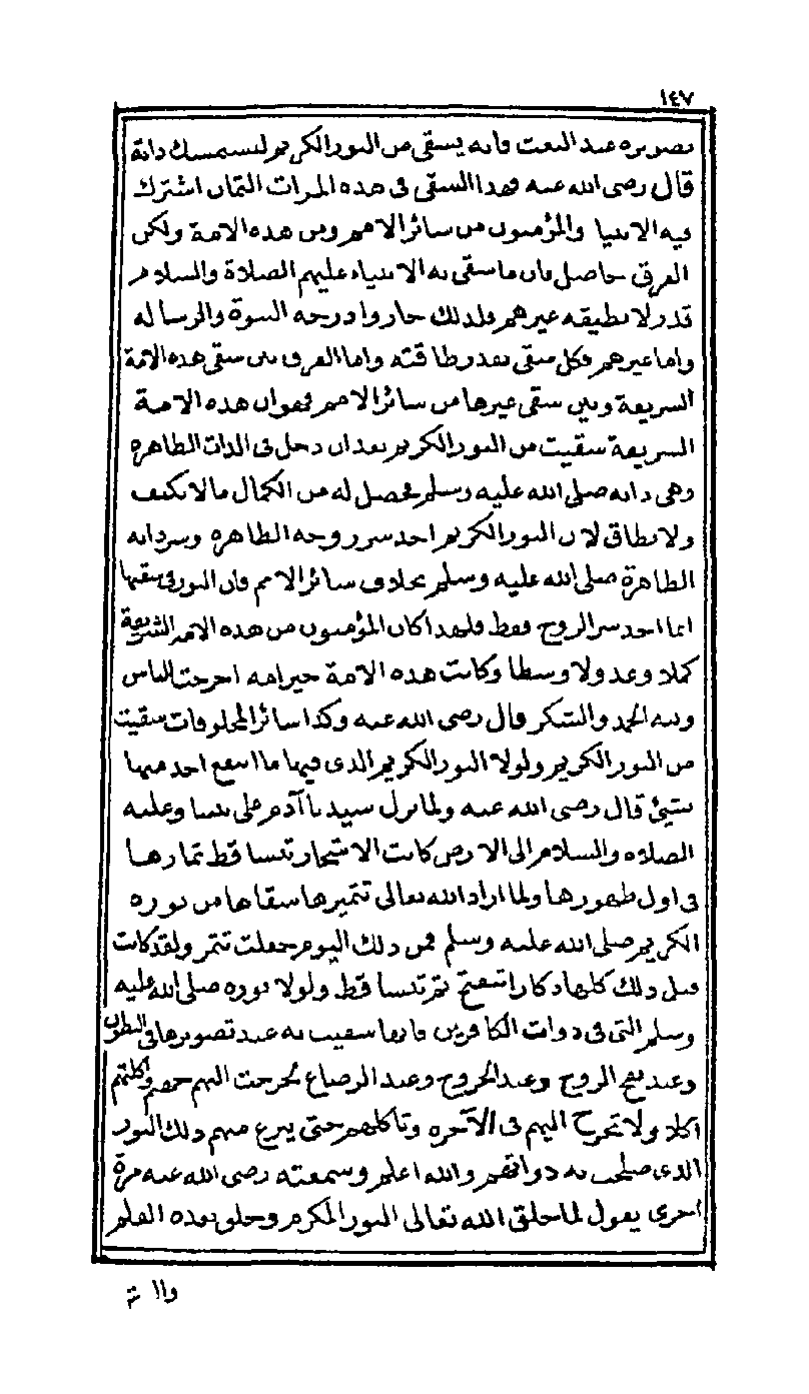 ١٤٧
تصويره عند البعث فانه يسقى من النور الكريم لتستمسك ذاته
قال رضى الله عنه فهذا السقى فى هذه المرات الثمان اشترك
فيه الانبيا والمؤمنون من سائر الامم ومن هذه الامة ولكن
الفرق حاصل فان ما سقى به الانبياء عليهم الصلاة والسلام
قدر لا يطيقه غيرهم فلذلك حازوا درجه النبوة والرساله
واما غيرهم فكل سقى بقدر طاقته واما الفرق بين سقى هذه الامة
الشريفة وبين سقى غيرها من سائر الامم فهو ان هذه الامة
الشريفة سقيت من النور الكريم بعد ان دخل فى الذات الطاهره
وهى ذاته صلى الله عليه وسلم فحصل له من الكمال ما لا يكيف
ولا يطاق لان النور الكريم اخذ سر روحه الطاهره وسر ذاته
الطاهرة صلى الله عليه وسلم بخلاف سائر الامم فان النور فى سقيها
انما اخذ سر الروح فقط فلهذا كان المؤمنون من هذه الامة الشريفة
كملا وعدولا وسطا وكانت هذه الامة خير امه اخرجت للناس
ولله الحمد والشكر قال رضى الله عنه وكذا سائر المخلوقات سقيت
من النور الكريم ولولا النور الكريم الذى فيها ما انتفع احد منها
بشئ قال رضى الله عنه ولما نزل سيدنا آدم على نبينا وعليه
الصلاه والسلام الى الارض كانت الاشجار تتساقط ثمارها
فى اول ظهورها ولما اراد الله تعالى تثميرها سقاها من نوره
الكريم صلى الله عليه وسلم فمن ذلك اليوم جعلت تثمر ولقد كانت
قبل ذلك كلها ذكارا تتفتح ثم تتساقط ولولا نوره صلى الله عليه
وسلم التى فى ذوات الكافرين فانها سقيت به عند تصويرها فى البطون
وعند نفخ الروح وعند الخروج وعند الرضاع لخرجت اليهم جهنم واكلتهم
اكلا ولا تخرج اليهم فى الآخره وتاكلهم حتى ينزع منهم ذلك النور
الذى صلحت به ذواتهم والله اعلم وسمعته رضى الله عنه مرة
اخرى يقول لما خلق الله تعالى النور المكرم وخلق بعده القلم